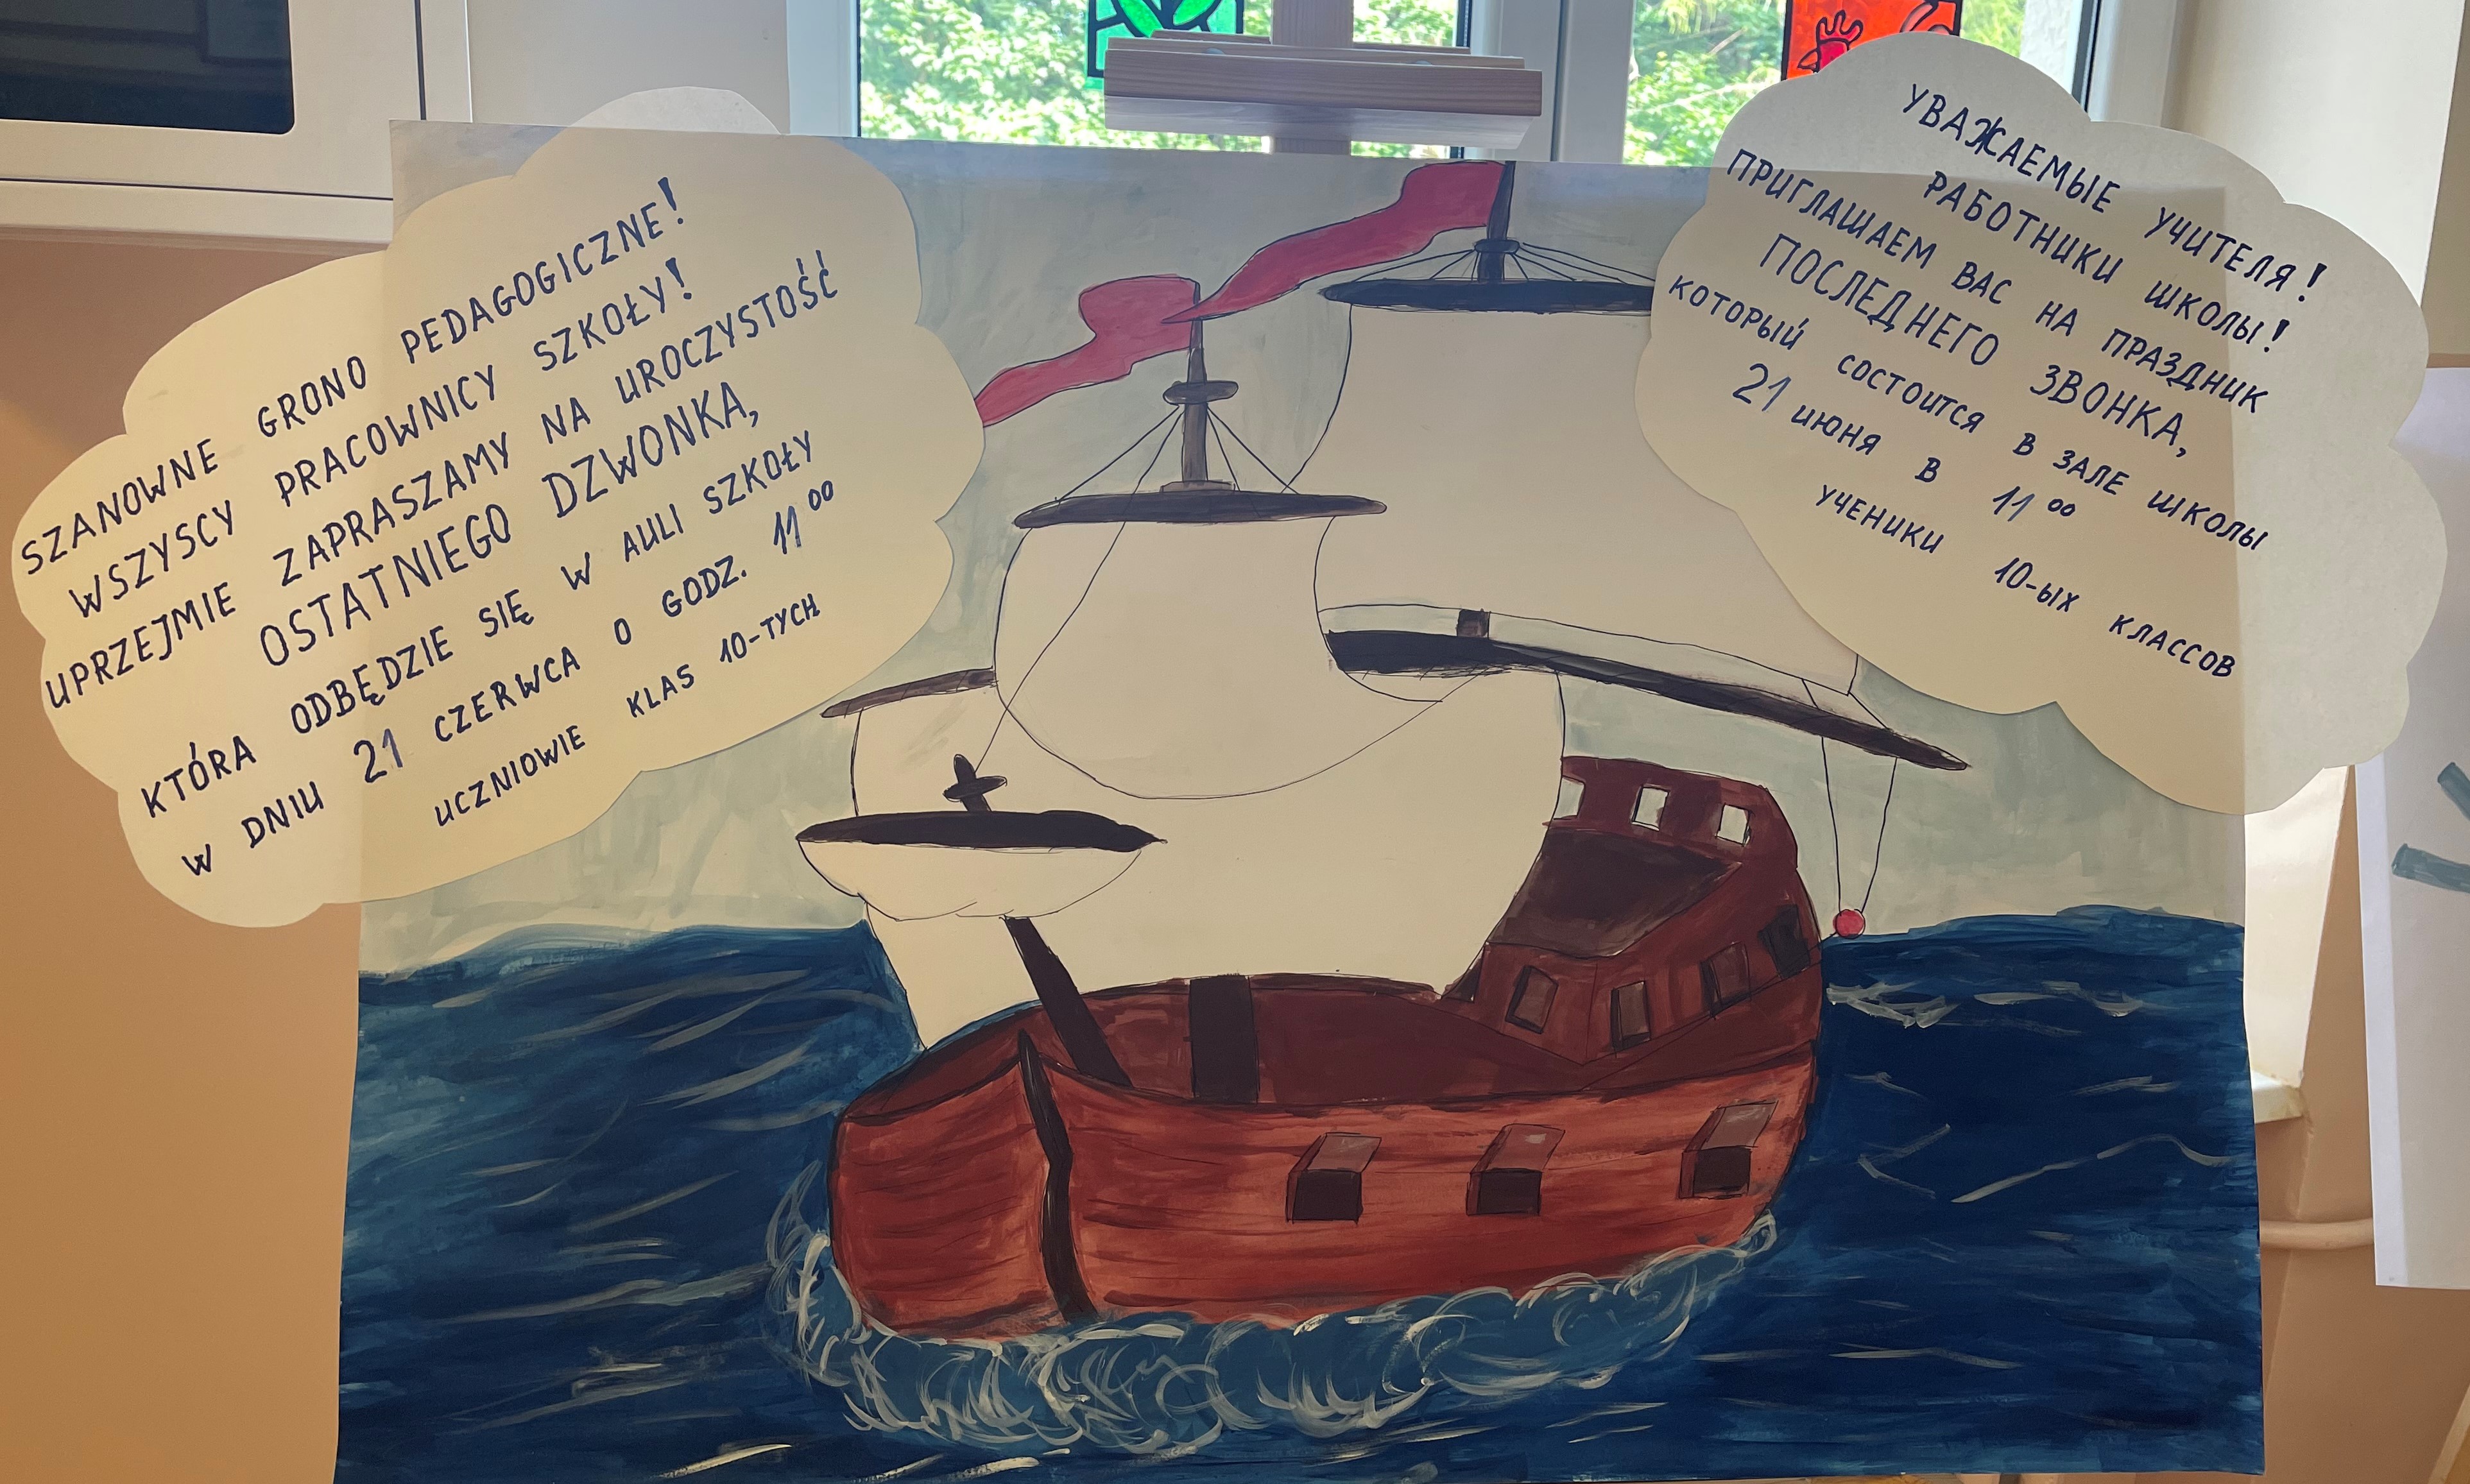 SZANOWNE GRONO PEDAGOGICZNE!
WSZYSCY PRACOWNICY SZKOŁY!
UPRZEJMIE ZAPRASZAMY NA UROCZYSTOŚĆ
OSTATNIEGO DZWONKA,
KTÓRA ODBĘDZIE SIĘ W AULI SZKOŁY
W DNIU 21 CZERWCA O GODZ. 11⁰⁰
UCZNIOWIE KLAS 10-TYCH
УВАЖАЕМЫЕ УЧИТЕЛЯ!
РАБОТНИКИ ШКОЛЫ!
ПРИГЛАШАЕМ ВАС НА ПРАЗДНИК
ПОСЛЕДНЕГО ЗВОНКА,
КОТОРЫЙ СОСТОИТСЯ В ЗАЛЕ ШКОЛЫ
21 ИЮНЯ В 11⁰⁰
УЧЕНИКИ 10-ЫХ КЛАССОВ